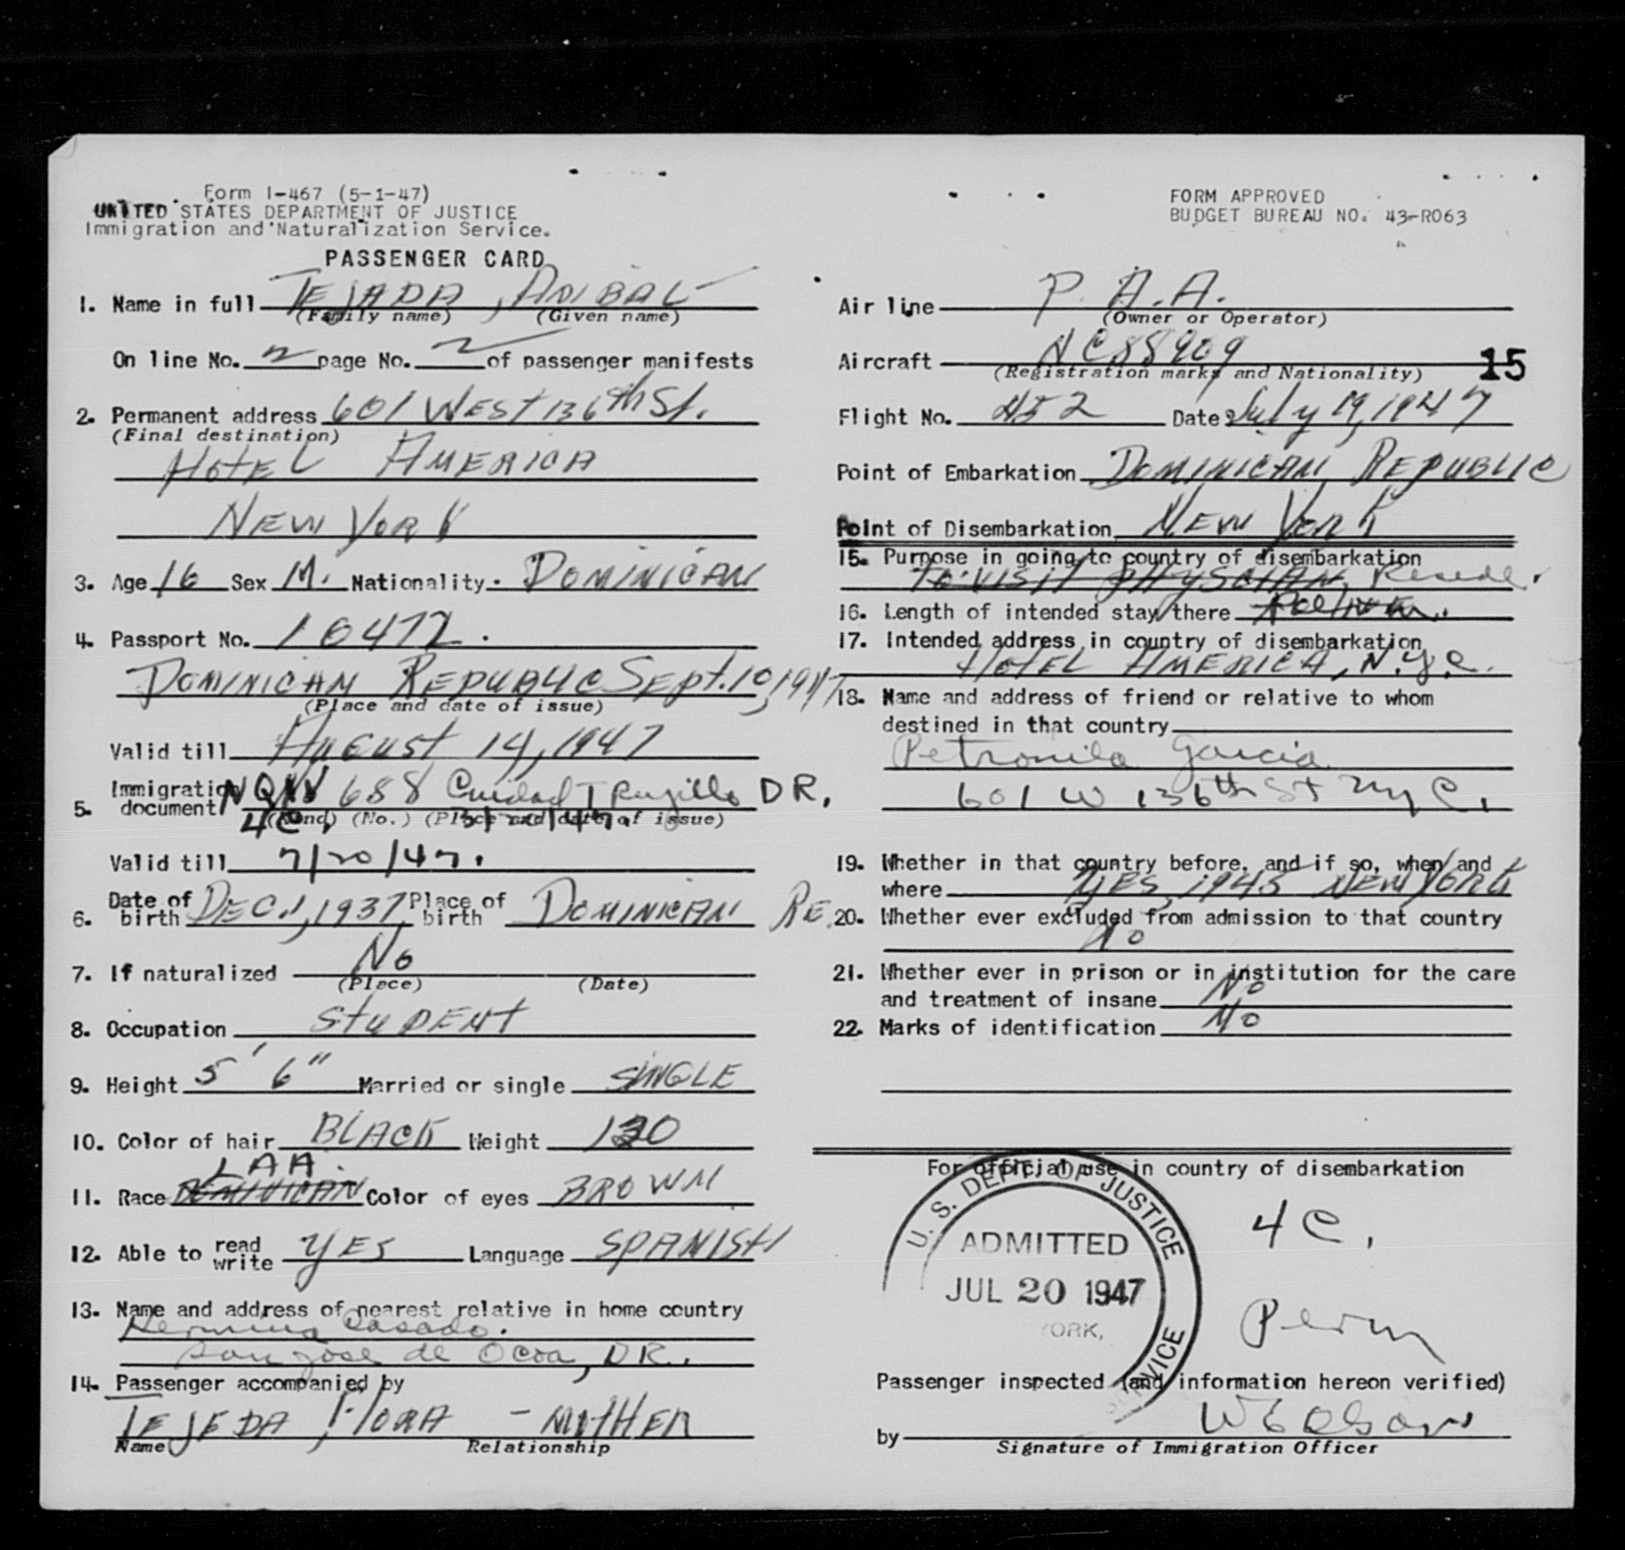 Form I-467 (5-1-47)
UNITED STATES DEPARTMENT OF JUSTICE
Immigration and Naturalization Service.
PASSENGER CARD
1. Name in full TEJADA, ANIBAL
(Family name) (Given name)
On line No. 2 page No. 2 of passenger manifests
2. Permanent address 601 WEST 136th St.
(Final destination)
HOTEL AMERICA
NEW YORK
3. Age 16 Sex M. Nationality. DOMINICAN
4. Passport No. 10472.
DOMINICAN REPUBLIC Sept. 10, 1947
(Place and date of issue)
Valid till August 14, 1947
5. Immigration document NQIV 688 Cuidad Trujillo DR.
4C. (Kind) (No.) (Place and date of issue)
Valid till 7/20/47.
6. Date of birth DEC. 1, 1937 Place of birth DOMINICAN RE.
7. If naturalized No
(Place) (Date)
8. Occupation STUDENT
9. Height 5' 6" Married or single SINGLE
10. Color of hair BLACK Weight 120
LAA.
11. Race DOMINICAN Color of eyes BROWN
12. Able to read write YES Language SPANISH
13. Name and address of nearest relative in home country
Casado.
San Jose de Ocoa, D.R.
14. Passenger accompanied by
TEJEDA, FLORA - MOTHER
Name Relationship
FORM APPROVED
BUDGET BUREAU NO. 43-R063
Air line P.A.A.
(Owner or Operator)
Aircraft NC88909 15
(Registration marks and Nationality)
Flight No. 452 Date July 19, 1947
Point of Embarkation DOMINICAN REPUBLIC
Point of Disembarkation NEW YORK
15. Purpose in going to country of disembarkation
TO VISIT PHYSCIAN, Reside.
16. Length of intended stay there
17. Intended address in country of disembarkation
HOTEL AMERICA, N.Y.C.
18. Name and address of friend or relative to whom
destined in that country
Petronila Garcia
601 W 136th St NYC.
19. Whether in that country before, and if so, when and
where YES, 1945 NEW YORK
20. Whether ever excluded from admission to that country
No
21. Whether ever in prison or in institution for the care
and treatment of insane No
22. Marks of identification No
For official use in country of disembarkation
U. S. DEPT. OF JUSTICE
ADMITTED
JUL 20 1947
YORK,
SERVICE
4C.
Perm
Passenger inspected (and information hereon verified)
by W E Olson
Signature of Immigration Officer